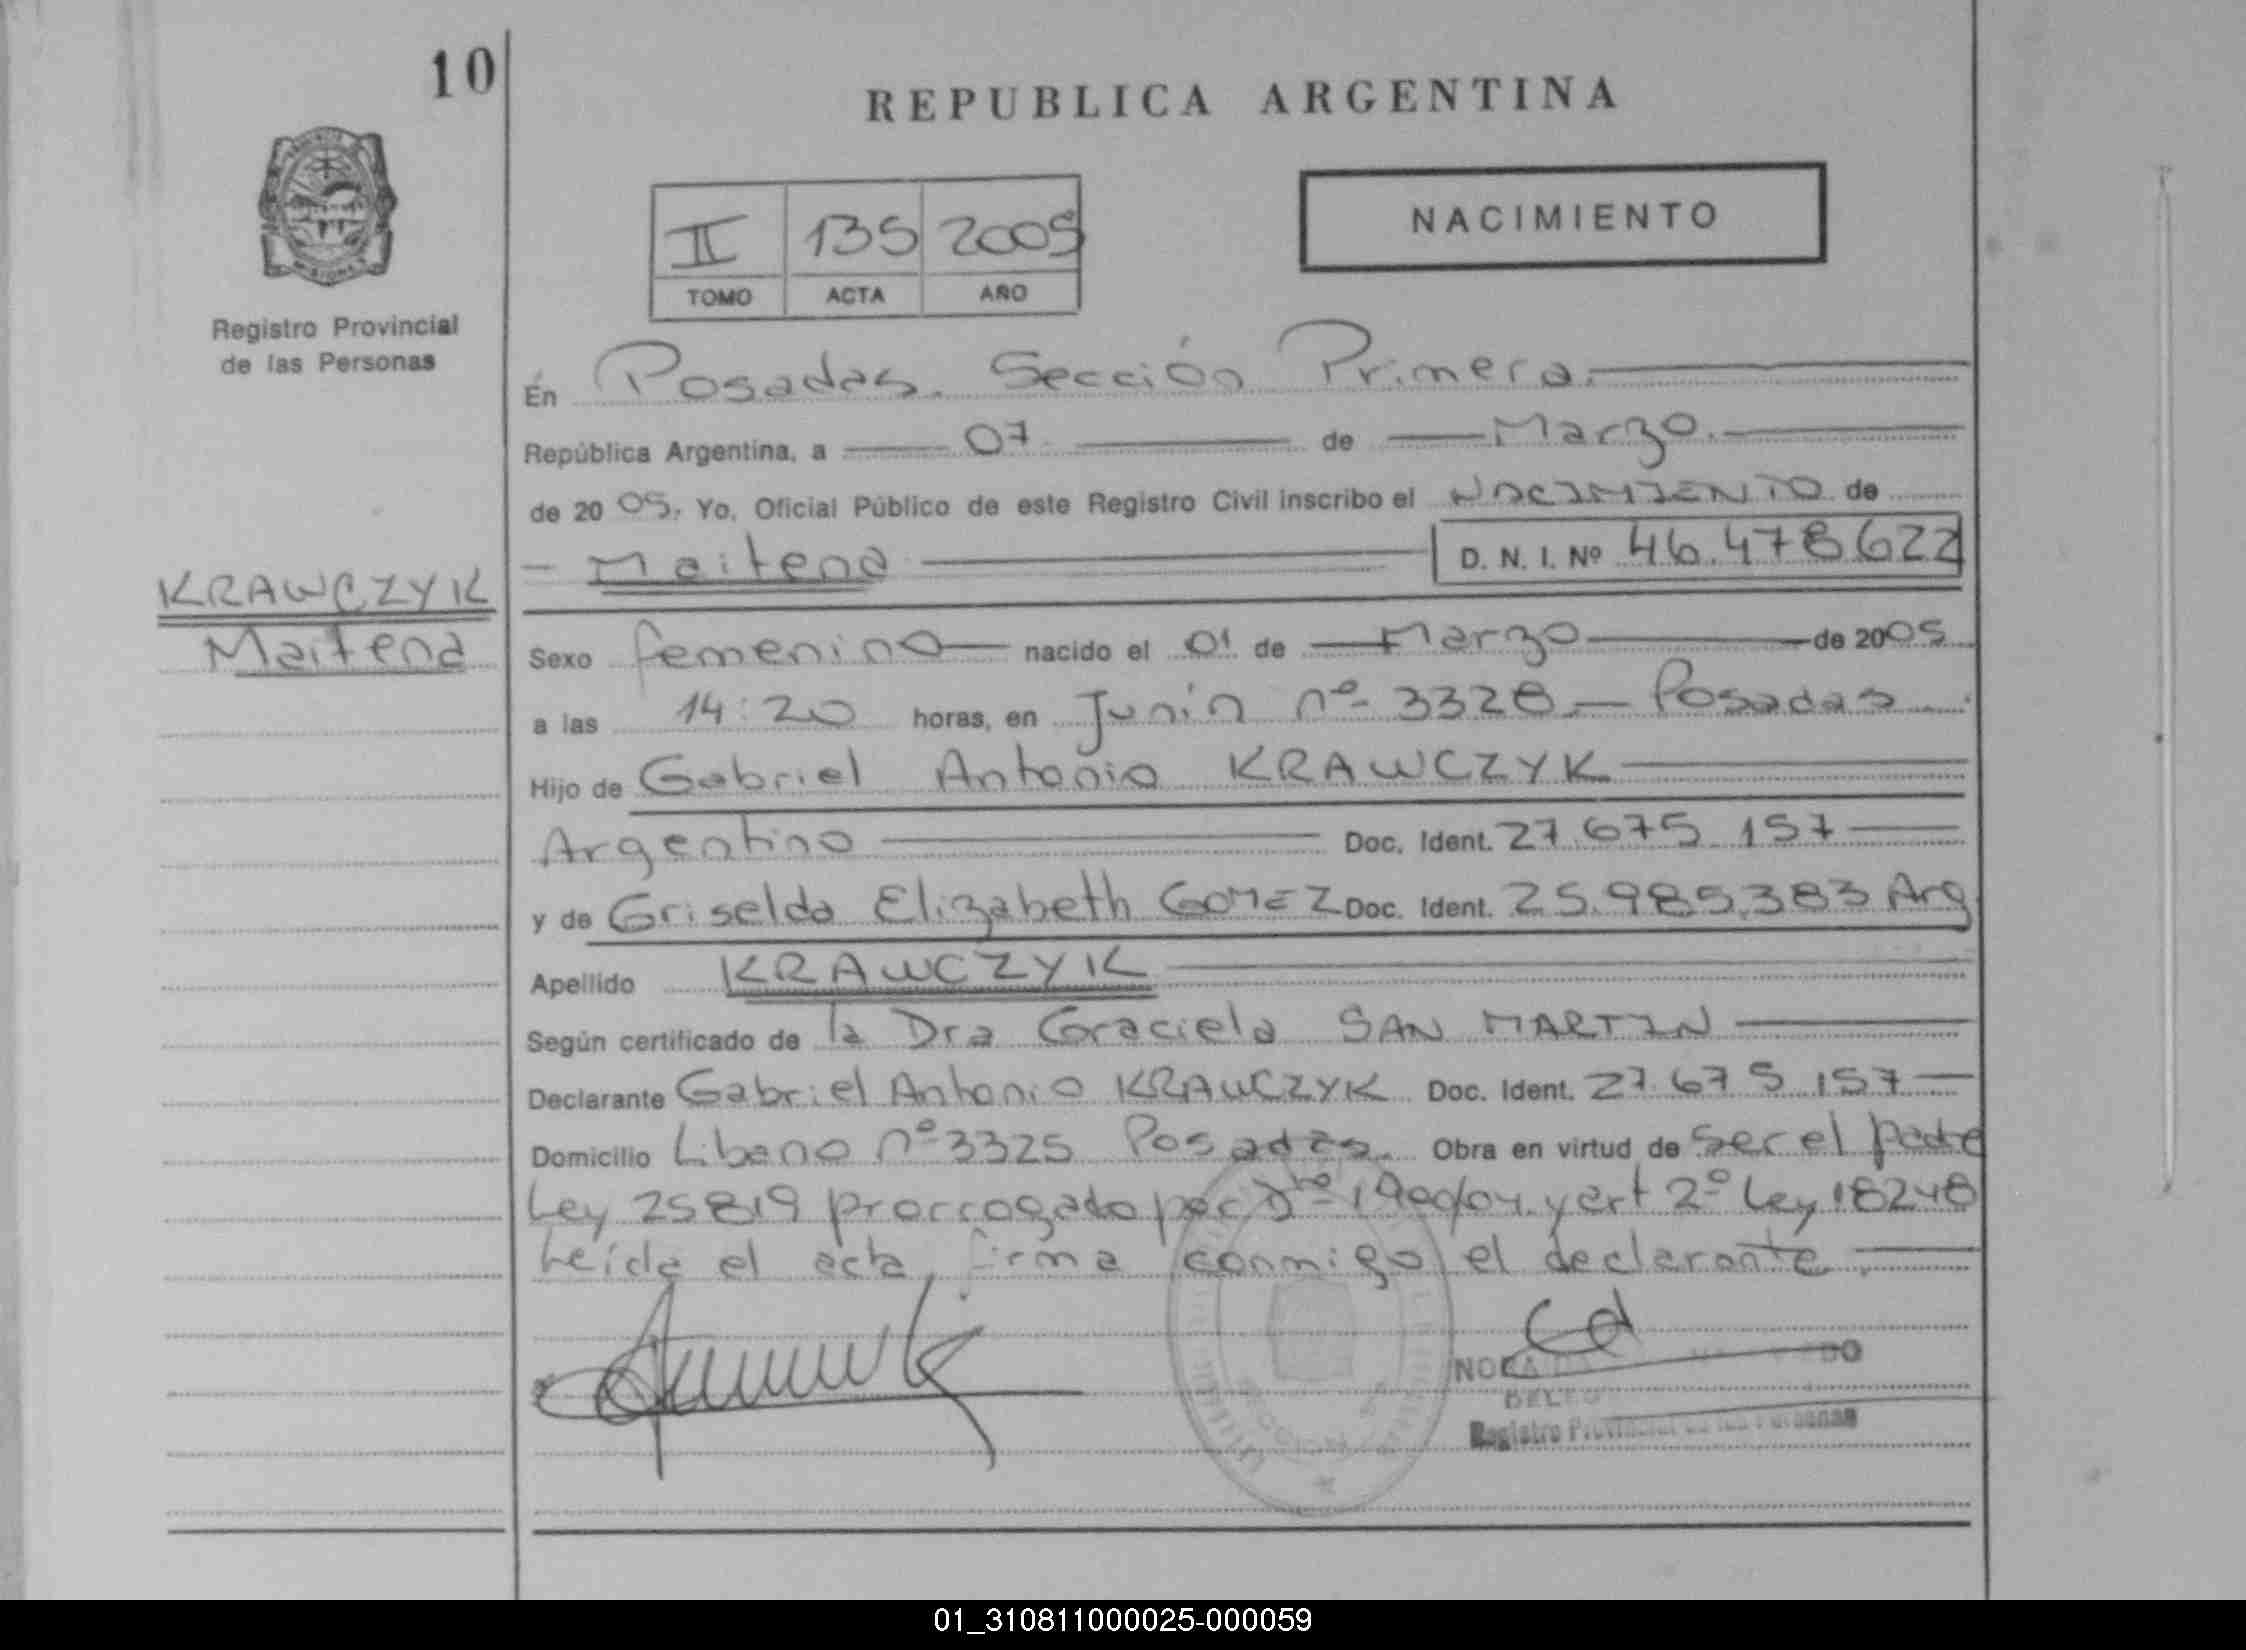 10
REPUBLICA ARGENTINA
NACIMIENTO
II 135 2005
TOMO ACTA AÑO
Registro Provincial
de las Personas
En Posadas. Sección Primera.
República Argentina, a 07 de Marzo.
de 20 05. Yo, Oficial Público de este Registro Civil inscribo el NACIMIENTO de
Maitena D. N. I. Nº 46.478.622
KRAWCZYK
Maitena
Sexo femenino nacido el 01 de Marzo de 2005
a las 14:20 horas, en Junín nº 3328 - Posadas
Hijo de Gabriel Antonio KRAWCZYK
Argentino Doc. Ident. 27.675.157
y de Griselda Elizabeth GOMEZ Doc. Ident. 25.985.383 Arg
Apellido KRAWCZYK
Según certificado de la Dra Graciela SAN MARTIN
Declarante Gabriel Antonio KRAWCZYK Doc. Ident. 27.675.157
Domicilio Libano nº 3325 Posadas. Obra en virtud de ser el padre
Ley 25819 prorrogado por y art 2º Ley 18248
Leída el acta, firma conmigo el declarante.
Registro Provincial de las Personas
01_310811000025-000059